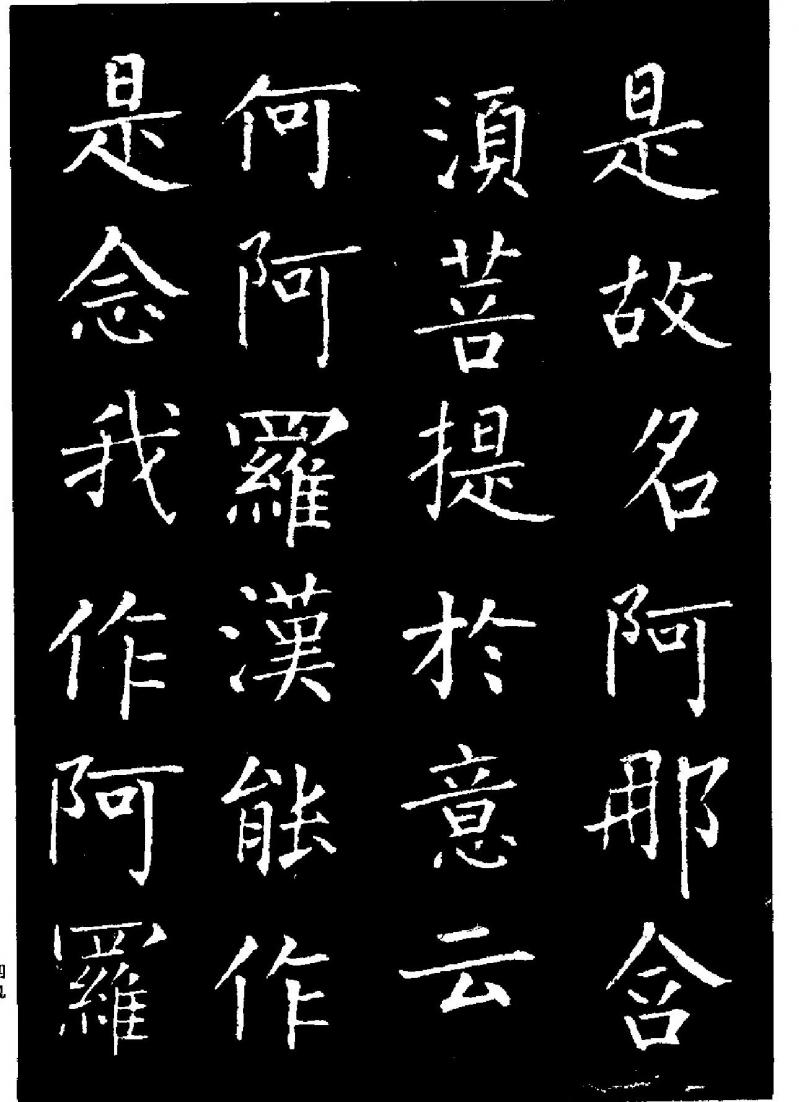 是故名阿那含
須菩提於意云
何阿羅漢能作
是念我作阿羅